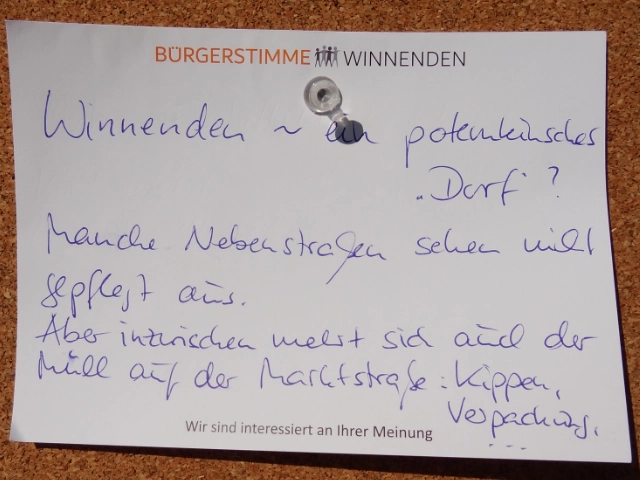 BÜRGERSTIMME WINNENDEN
Winnenden ~ ein potemkinsches
"Dorf"?
Manche Nebenstraßen sehen nicht
gepflegt aus.
Aber inzwischen mehrt sich auch der
Müll auf der Marktstraße: Kippen,
Verpackung,
...
Wir sind interessiert an Ihrer Meinung